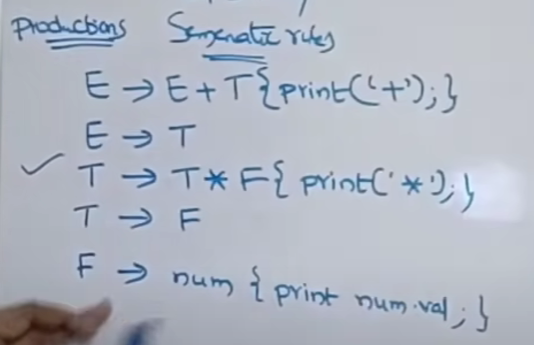 Productions Semenatic rules
E → E + T { print('+'); }
E → T
T → T * F { print('*'); }
T → F
F → num { print num.val ; }